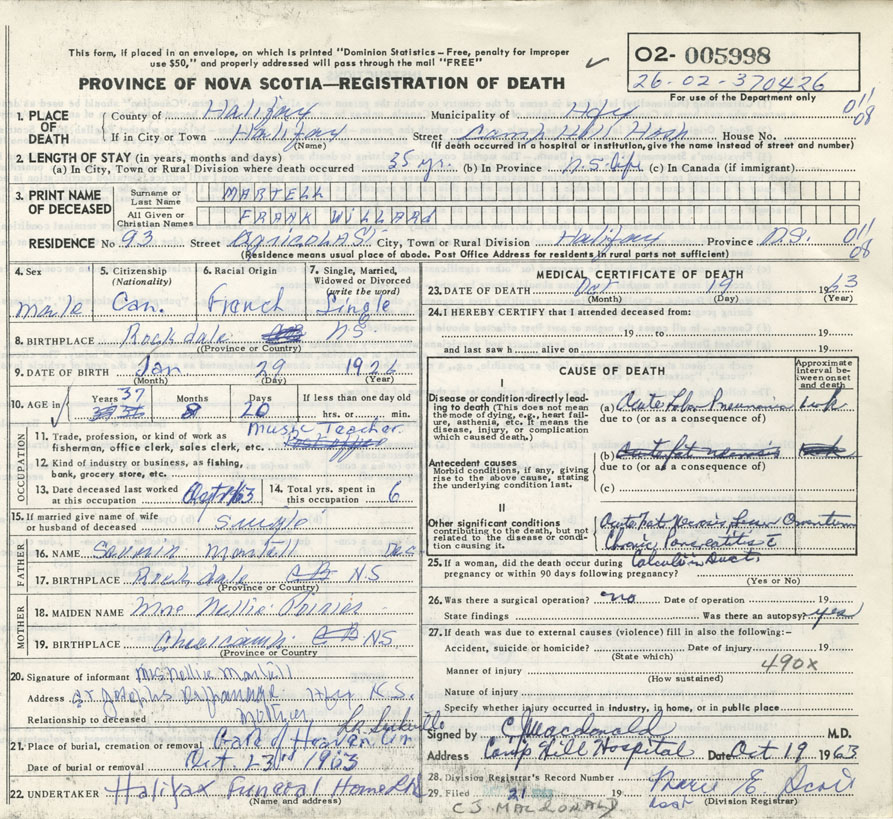 This form, if placed in an envelope, on which is printed "Dominion Statistics – Free, penalty for improper
use $50," and properly addressed will pass through the mail "FREE"
✓
O2- 005998
26-02-370426
For use of the Department only
PROVINCE OF NOVA SCOTIA—REGISTRATION OF DEATH
011
08
1. PLACE OF DEATH
County of Halifax Municipality of Hfx
If in City or Town Halifax Street Camp Hill Hosp House No.
(Name) (If death occurred in a hospital or institution, give the name instead of street and number)
2. LENGTH OF STAY (in years, months and days)
(a) In City, Town or Rural Division where death occurred 35 yr. (b) In Province N.S. life (c) In Canada (if immigrant)
3. PRINT NAME OF DECEASED
Surname or Last Name MARTELL
All Given or Christian Names FRANK WILLARD
RESIDENCE No 93 Street Agricola St City, Town or Rural Division Halifax Province N.S.
011
08
(Residence means usual place of abode. Post Office Address for residents in rural parts not sufficient)
4. Sex
male
5. Citizenship (Nationality)
Can.
6. Racial Origin
French
7. Single, Married, Widowed or Divorced (write the word)
Single
8. BIRTHPLACE Rockdale NS
(Province or Country)
9. DATE OF BIRTH Jan 29 192
(Month) (Day) (Year)
10. AGE in
Years 37
Months 8
Days 20
If less than one day old
hrs. or min.
OCCUPATION
11. Trade, profession, or kind of work as fisherman, office clerk, sales clerk, etc. Music Teacher
Post office
12. Kind of industry or business, as fishing, bank, grocery store, etc.
13. Date deceased last worked at this occupation 1963
14. Total yrs. spent in this occupation 6
15. If married give name of wife or husband of deceased single
FATHER
16. NAME Martell Dec
17. BIRTHPLACE Rockdale CB NS
(Province or Country)
MOTHER
18. MAIDEN NAME Mrs Nellie Poirier
19. BIRTHPLACE Cheticamp CB NS
(Province or Country)
20. Signature of informant Mrs Nellie Martell
Address St Josephs Orphanage Hfx N.S.
Relationship to deceased Mother
21. Place of burial, cremation or removal Gate of Heaven Cem Lr Sackville
Date of burial or removal Oct 23rd 1963
22. UNDERTAKER Halifax Funeral Home Ltd
(Name and address)
MEDICAL CERTIFICATE OF DEATH
23. DATE OF DEATH Oct 19 1963
(Month) (Day) (Year)
24. I HEREBY CERTIFY that I attended deceased from:
19 to 19
and last saw h alive on 19
CAUSE OF DEATH
Approximate interval between onset and death
I
Disease or condition directly leading to death (This does not mean the mode of dying, e.g., heart failure, asthenia, etc. It means the disease, injury, or complication which caused death.)
(a) Acute Lobar Pneumonia 1 wk
due to (or as a consequence of)
Antecedent causes
Morbid conditions, if any, giving rise to the above cause, stating the underlying condition last.
(b) Acute fat necrosis
due to (or as a consequence of)
(c)
II
Other significant conditions
contributing to the death, but not related to the disease or condition causing it.
Acute Fat Necrosis Omentum
Chronic Pancreatitis c̄
Calculi in Duct.
25. If a woman, did the death occur during pregnancy or within 90 days following pregnancy?
(Yes or No)
26. Was there a surgical operation? no Date of operation 19
State findings Was there an autopsy? yes
27. If death was due to external causes (violence) fill in also the following:–
Accident, suicide or homicide? Date of injury 19
(State which)
Manner of injury 490X
(How sustained)
Nature of injury
Specify whether injury occurred in industry, in home, or in public place
Signed by C J Macdonald M.D.
Address Camp Hill Hospital Date Oct 19 1963
28. Division Registrar's Record Number
29. Filed 21 19 Marie E Scott
Asst (Division Registrar)
C J MACDONALD